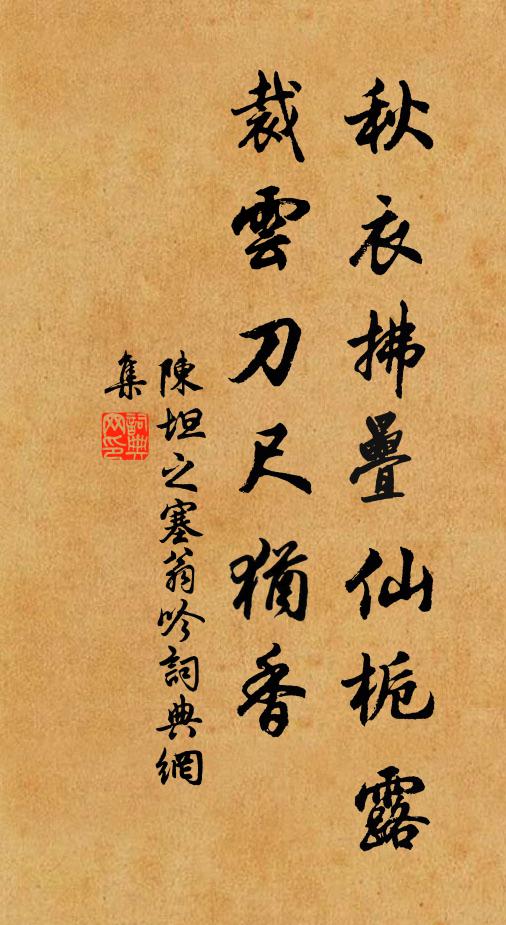 秋衣拂疊仙栀露
裁雲刀尺猶香
陳坦之塞翁吟詞典網
集
詞典
网印